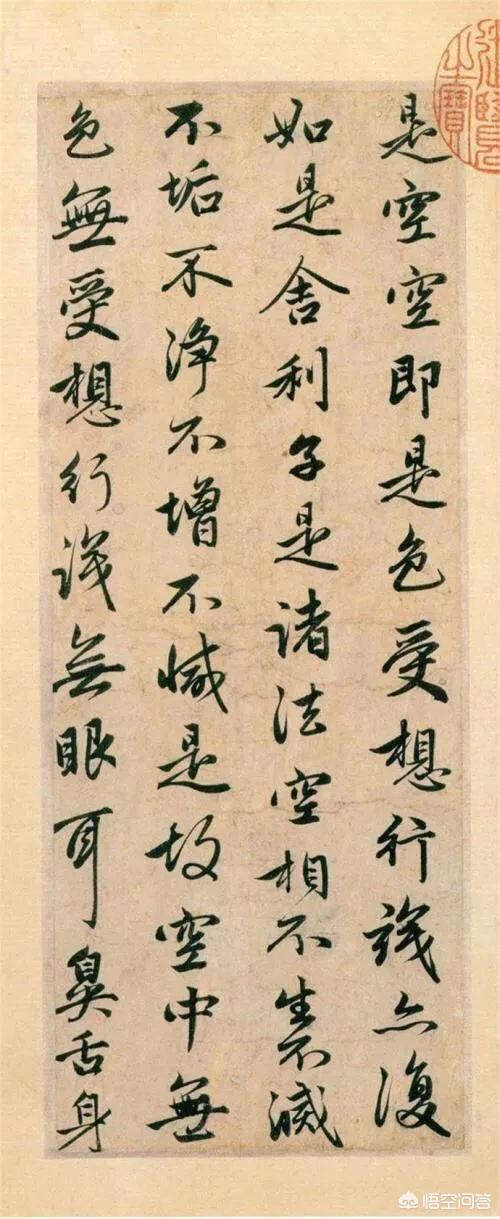 是空空即是色受想行識亦復
如是舍利子是諸法空相不生不滅
不垢不淨不增不減是故空中無
色無受想行識無眼耳鼻舌身
悟空问答